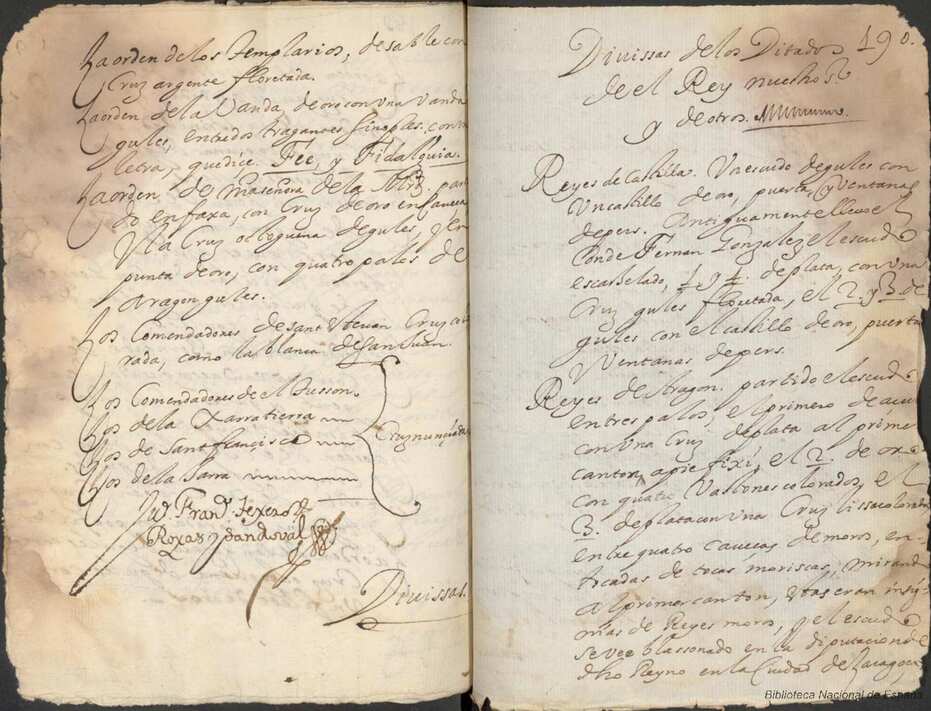 La orden de los templarios, de sable con
Cruz argente floretada.
La orden de la Vanda, de oro con una vanda
gules, entre dos tragantes sinoples, con
letra, que dice. Fee, y Fidalguia.
La orden de maseñora de la parti
do en faxa, con Cruz de oro en
y la Cruz de gules, y en
punta de oro, con quatro palos de
Aragon gules.
Los Comendadores de sant Stevan Cruz colo
rada, como la blanca de San Juan.
Los Comendadores de el tusson.
Los de la Xarratierra
Los de Sant françisco
Los de la Jarra
Cruz
Franco
Roxas y Sandoval
Divissas.
Divissas de los Ditados 190.
de el Rey nuestro Sr
y de otros.
Reyes de Castilla. Un escudo de gules con
Un castillo de oro, puerta, y Ventanas
de pers. Antiguamente llevo el
Conde Fernan Gonzalez el escudo
escartelado, 1 y 4. de plata, con Una
Cruz gules floretada, el 2. y 3. de
gules con el castillo de oro, puerta
y Ventanas de pers.
Reyes de Aragon. partido el escudo
en tres palos, el primero de acul
con Una Cruz de plata al primer
canton, a pie fixi, el 2. de oro
con quatro Vastones colorados, el
3. de plata con Una Cruz lissa colorada
entre quatro cavecas de moros, en-
trcadas de tocas moriscas, mirando
al primer canton, estas eran insig-
nias de Reyes moros, y el escudo
se vee blassonado en la diputacion de
dho Reyno en la Ciudad de Zaragoça
Biblioteca Nacional de España